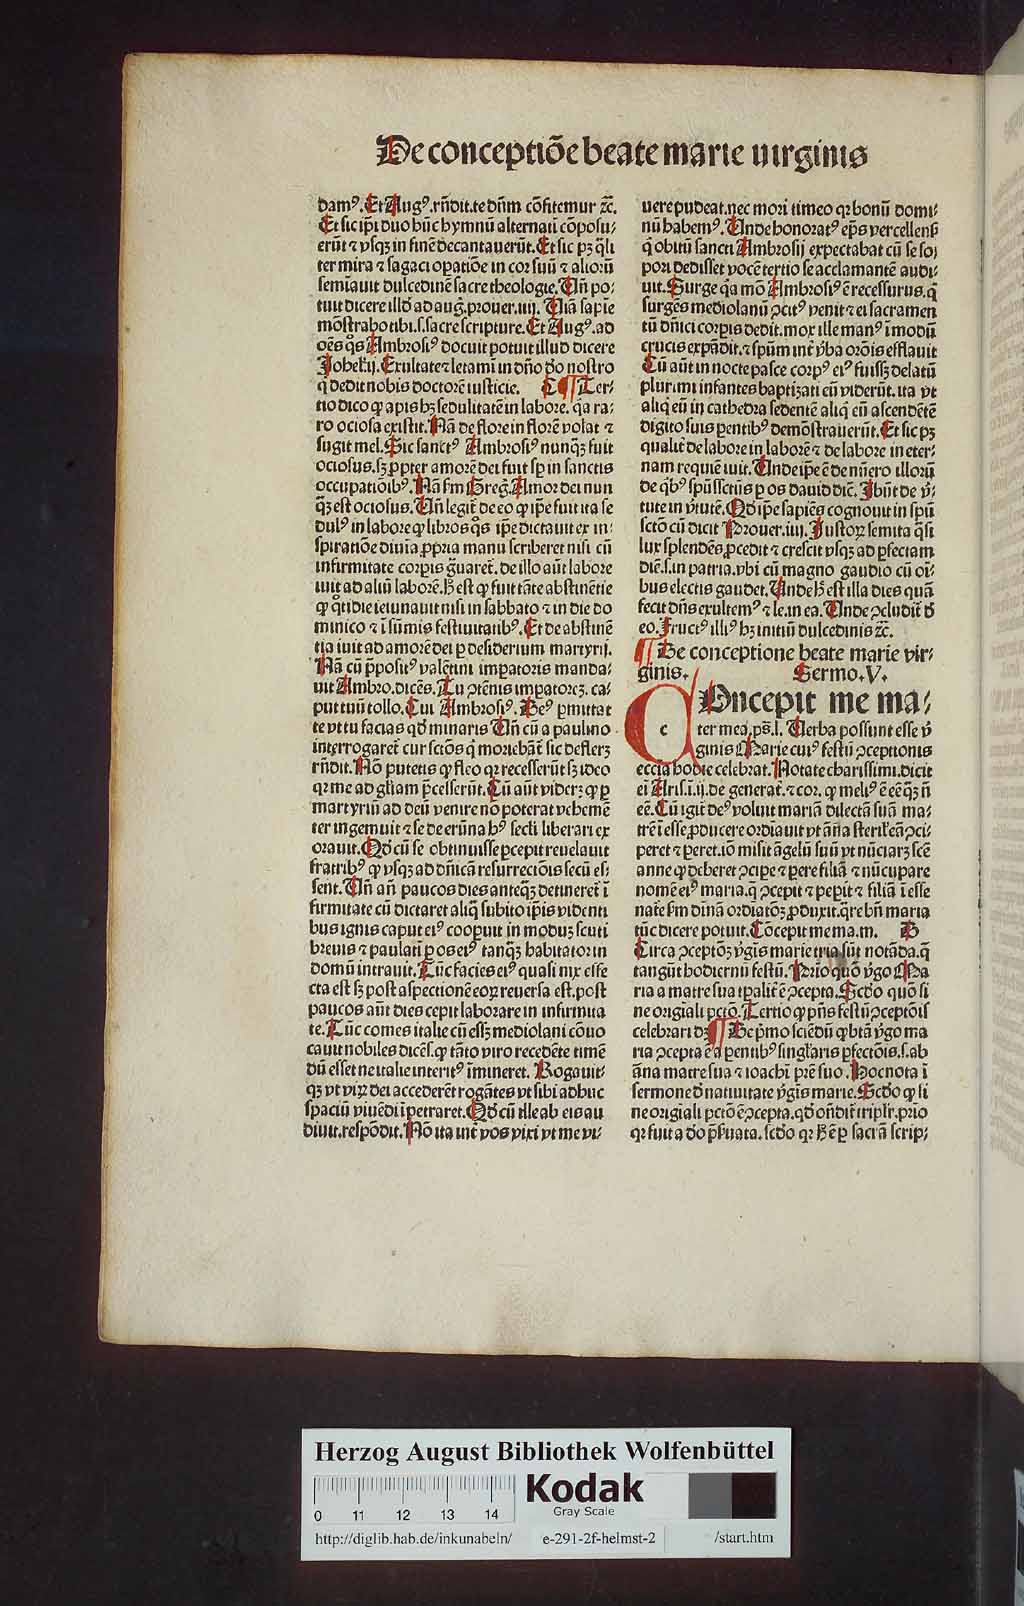 De conceptiõe beate marie uirginis
damꝰ. Et Augꝰ. rñdit. te dñm cõfitemur ⁊c̃.
Et sic ip̃i duo hũc hymnũ alternati cõposu-
erũt ⁊ vsqꝫ in finẽ decantauerũt. Et sic pꝫ q̃li
ter mira ⁊ sagaci opatiõe in cor suũ ⁊ alioꝝ
semiauit dulcedinẽ sacre theologie. Vñ po-
tuit dicere illđ ad aug. prouer. iiij. Viã sapĩe
mõstrabo tibi. s. sacre scripture. Et Augꝰ. ad
oẽs q̃s Ambrosiꝰ docuit potuit illud dicere
Johel. ij. Exultate ⁊ letami in dño đo nostro
q̃ dedit nobis doctorẽ iusticie. ¶ Ter-
tio dico ꝙ apis hꝫ sedulitatẽ in labore. q̃a ra-
ro ociosa existit. Nã de flore in florẽ volat ⁊
sugit mel. Sic sanctꝰ Ambrosiꝰ nunq̃ꝫ fuit
ociosus. sꝫ ꝓpter amorẽ dei fuit sp̃ in sanctis
occupatiõibꝰ. Nã ẜm Greg. Amor dei nun
q̃ꝫ est ociosus. Vñ legit̃ de eo ꝙ ip̃e fuit ita se
dulꝰ in labore ꝙ libros q̃s ip̃e dictauit ex in-
spiratiõe diuĩa ꝓpria manu scriberet nisi cũ
infirmitate corpis g̃uaret̃. de illo aũt labore
iuit ad aliũ laborẽ. hͦ est ꝙ fuit tãte abstinẽtie
ꝙ q̃tidie ieiunauit nisi in sabbato ⁊ in die do
minico ⁊ ĩ sũmis festiuitatibꝰ. Et de abstinẽ
tia iuit ad amorẽ dei ꝑ desiderium martyrij.
Nã cũ p̃positꝰ valẽtini imꝑatoris manda-
uit Ambro. dicẽs. Tu ↄtẽnis imꝑatorẽꝫ. ca-
put tuũ tollo. Cui Ambrosiꝰ. Deꝰ ꝑmittat
te vt tu facias qđ minaris Vñ cũ a paulino
interrogaret̃ cur sctõs q̃ moriebãt̃ sic defleret
rñdit. Nõ putetis ꝙ fleo qꝛ recesserũt sꝫ ideo
qꝛ me ad gl̃iam p̃cesserũt. Cũ aũt videret ꝙ ꝑ
martyriũ ad deũ venire nõ poterat vehemẽ
ter ingemuit ⁊ se de erũna hꝰ secl̃i liberari ex
orauit. Qđ cũ se obtinuisse ꝑcepit reuelauit
fratribꝰ ꝙ vsqꝫ ad dñicã resurrectiõis secũ es-
sent. Vñ añ paucos dies anteq̃ꝫ detineret̃ ĩ
firmitate cũ dictaret aliq̃ subito ip̃is videnti
bus ignis caput eiꝰ cooꝑuit in moduꝫ scuti
breuis ⁊ paulatĩ ꝑ os eiꝰ tanq̃ꝫ habitator in
domũ intrauit. Tũc facies eiꝰ quasi nix effe
cta est sꝫ post aspectionẽ eoꝝ reuersa est. post
paucos aũt dies cepit laborare in infirmita
te. Tũc comes italie cũ essꝫ mediolani cõuo
cauit nobiles dicẽs. ꝙ tãto viro recedẽte timẽ
dũ esset ne italie interitꝰ ĩmineret. Rogauit-
qꝫ vt viꝝ dei accederẽt rogãtes vt sibi adhuc
spaciũ viuẽdi ĩpetraret. Qđ cũ ille ab eis au
diuit. respõdit. Nõ ita int̃ vos vixi vt me vi-
uere pudeat. nec mori timeo qꝛ bonũ domi-
nũ habemꝰ. Vnde honoratꝰ ep̃s vercellensꝭ
q̃ obitũ sancti Ambrosij expectabat cũ se so-
pori dedisset vocẽ tertio se acclamantẽ audi-
uit. Surge q̃a mõ Ambrosiꝰ ẽ recessurus. q̃
surgẽs mediolanũ ↄcitꝰ venit ⁊ ei sacramen
tũ dñici corpis dedit. mox ille manꝰ ĩ modũ
crucis expãdit. ⁊ sp̃um int̃ v̾ba orõis efflauit
Cũ aũt in nocte pasce corpꝰ eiꝰ fuissꝫ delatũ
plurimi infantes baptizati cũ viderũt. ita vt
aliq̃ eũ in cathedra sedentẽ aliq̃ eũ ascendẽtẽ
digito suis parentibꝰ demõstrauerũt. Et sic pꝫ
qualit̃ de labore in laborẽ ⁊ de labore in eter-
nam requiẽ iuit. Vnde ip̃e ẽ de nũero illoꝝ
de q̃bꝰ sp̃ussctũs ꝑ os dauid dic̃. Ibũt de v̾-
tute in v̾tutẽ. Qđ ip̃e sapiẽs cognouit in sp̃u
sctõ cũ dicit Prouer. iiij. Justoꝝ semita q̃si
lux splendẽs ꝓcedit ⁊ crescit vsqꝫ ad ꝑfectam
diẽ. s. in patria. vbi cũ magno gaudio cũ oĩ-
bus electis gaudet. Vnde hͦ est illa dies quã
fecit dñs exultemꝰ ⁊ le. in ea. Vnde ↄcludit̃ đ
eo. Fructꝰ illiꝰ hꝫ initiũ dulcedinis ⁊c̃.
¶ De conceptione beate marie vir-
ginis. Sermo. V.
COncepit me ma-
ter mea. ps̃. l. Verba possunt esse v̾
ginis Marie cuiꝰ festũ ↄceptionis
eccĩa hodie celebrat. Notate charissimi. dicit
eĩ Aris. ĩ. ij. de generat̃. ⁊ cor. ꝙ meliꝰ ẽ eẽ q̃ꝫ ñ
eẽ. Cũ igit̃ deꝰ voluit mariã dilectã suã ma-
trẽ ĩ esse ꝓducere ordiauit vt ãña sterilꝭ eã ↄci-
peret ⁊ ꝑeret. iõ misit ãgelũ suũ vt nũciaret scẽ
anne ꝙ deberet ↄcipe ⁊ ꝑere filiã ⁊ nũcupare
nomẽ eiꝰ maria. q̃ ↄcepit ⁊ peꝑit ⁊ filiã ĩ esse
nat̃e ẜm diuinã ordiatõꝫ ꝓduxit. q̃re bñ maria
tũc dicere potuit. Cõcepit me ma. m. B
Circa ↄceptõꝫ v̾gis marie tria sũt notãda. q̃
tangũt hodiernũ festũ. Primo quõ v̾go Ma
ria a matre sua tꝑalit̃ ẽ ↄcepta. Scđo quõ si
ne origĩali pctõ. Tertio ꝙ p̃ñs festũ ↄceptõis
celebrari dꝫ ¶ De p̃mo sciẽdũ ꝙ btã v̾go ma
ria ↄcepta ẽ a parentibꝰ singl̃aris ꝑfectõis. s. ab
ãna matre sua ⁊ ioachĩ p̃re suo. Hoc nota ĩ
sermone đ natiuitate v̾gis marie. Scđo ꝙ si
ne origĩali pctõ ẽ ↄcepta. qđ oñdit̃ tripl̃r. prio
qꝛ fuit a đo p̃ẜuata. scđo qꝛ hͦ ẽ ꝑ sacrã scrip-
Herzog August Bibliothek Wolfenbüttel
0 11 12 13 14
Kodak
Gray Scale
http://diglib.hab.de/inkunabeln/ e-291-2f-helmst-2 /start.htm